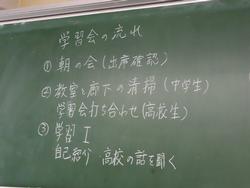 学習会の流れ
① 朝の会(出席確認)
② 教室と廊下の清掃(中学生)
学習会打ち合わせ(高校生)
③ 学習 I
自己紹介 高校の話を聞く